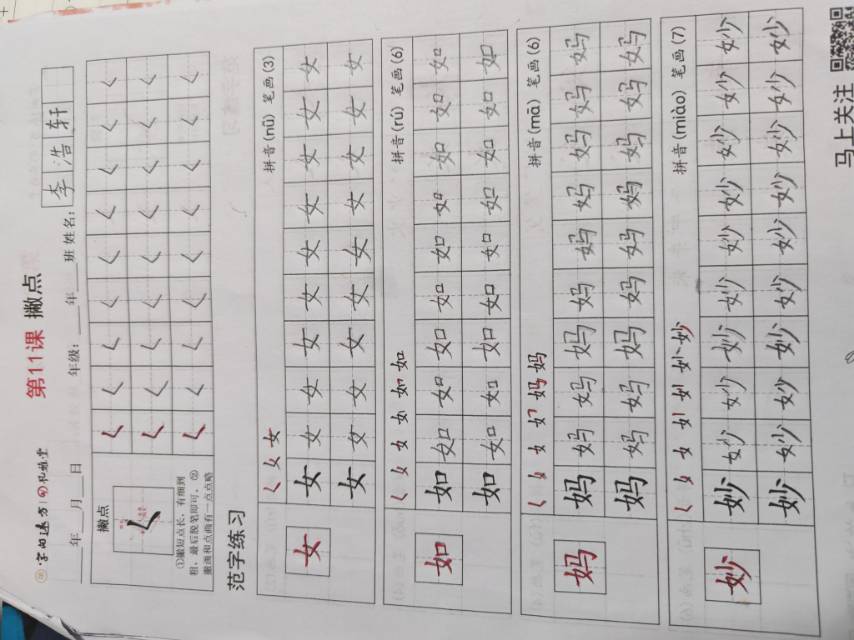 第11课 撇点
字的远方
____年____月____日 年级：____年____班 姓名：李浩轩
撇点
①撇短点长，有细到
粗，最后脱笔即可。②
撇画和点画有一点点略
范字练习
女 拼音(nǚ) 笔画(3)
女 女 女 女 女 女 女 女 女 女
女 女 女 女 女 女 女 女 女 女
如 拼音(rú) 笔画(6)
如 如 如 如 如 如 如 如 如 如
如 如 如 如 如 如 如 如 如 如
妈 拼音(mā) 笔画(6)
妈 妈 妈 妈 妈 妈 妈 妈 妈 妈
妈 妈 妈 妈 妈 妈 妈 妈 妈 妈
妙 拼音(miào) 笔画(7)
妙 妙 妙 妙 妙 妙 妙 妙 妙 妙
妙 妙 妙 妙 妙 妙 妙 妙 妙 妙
马上关注